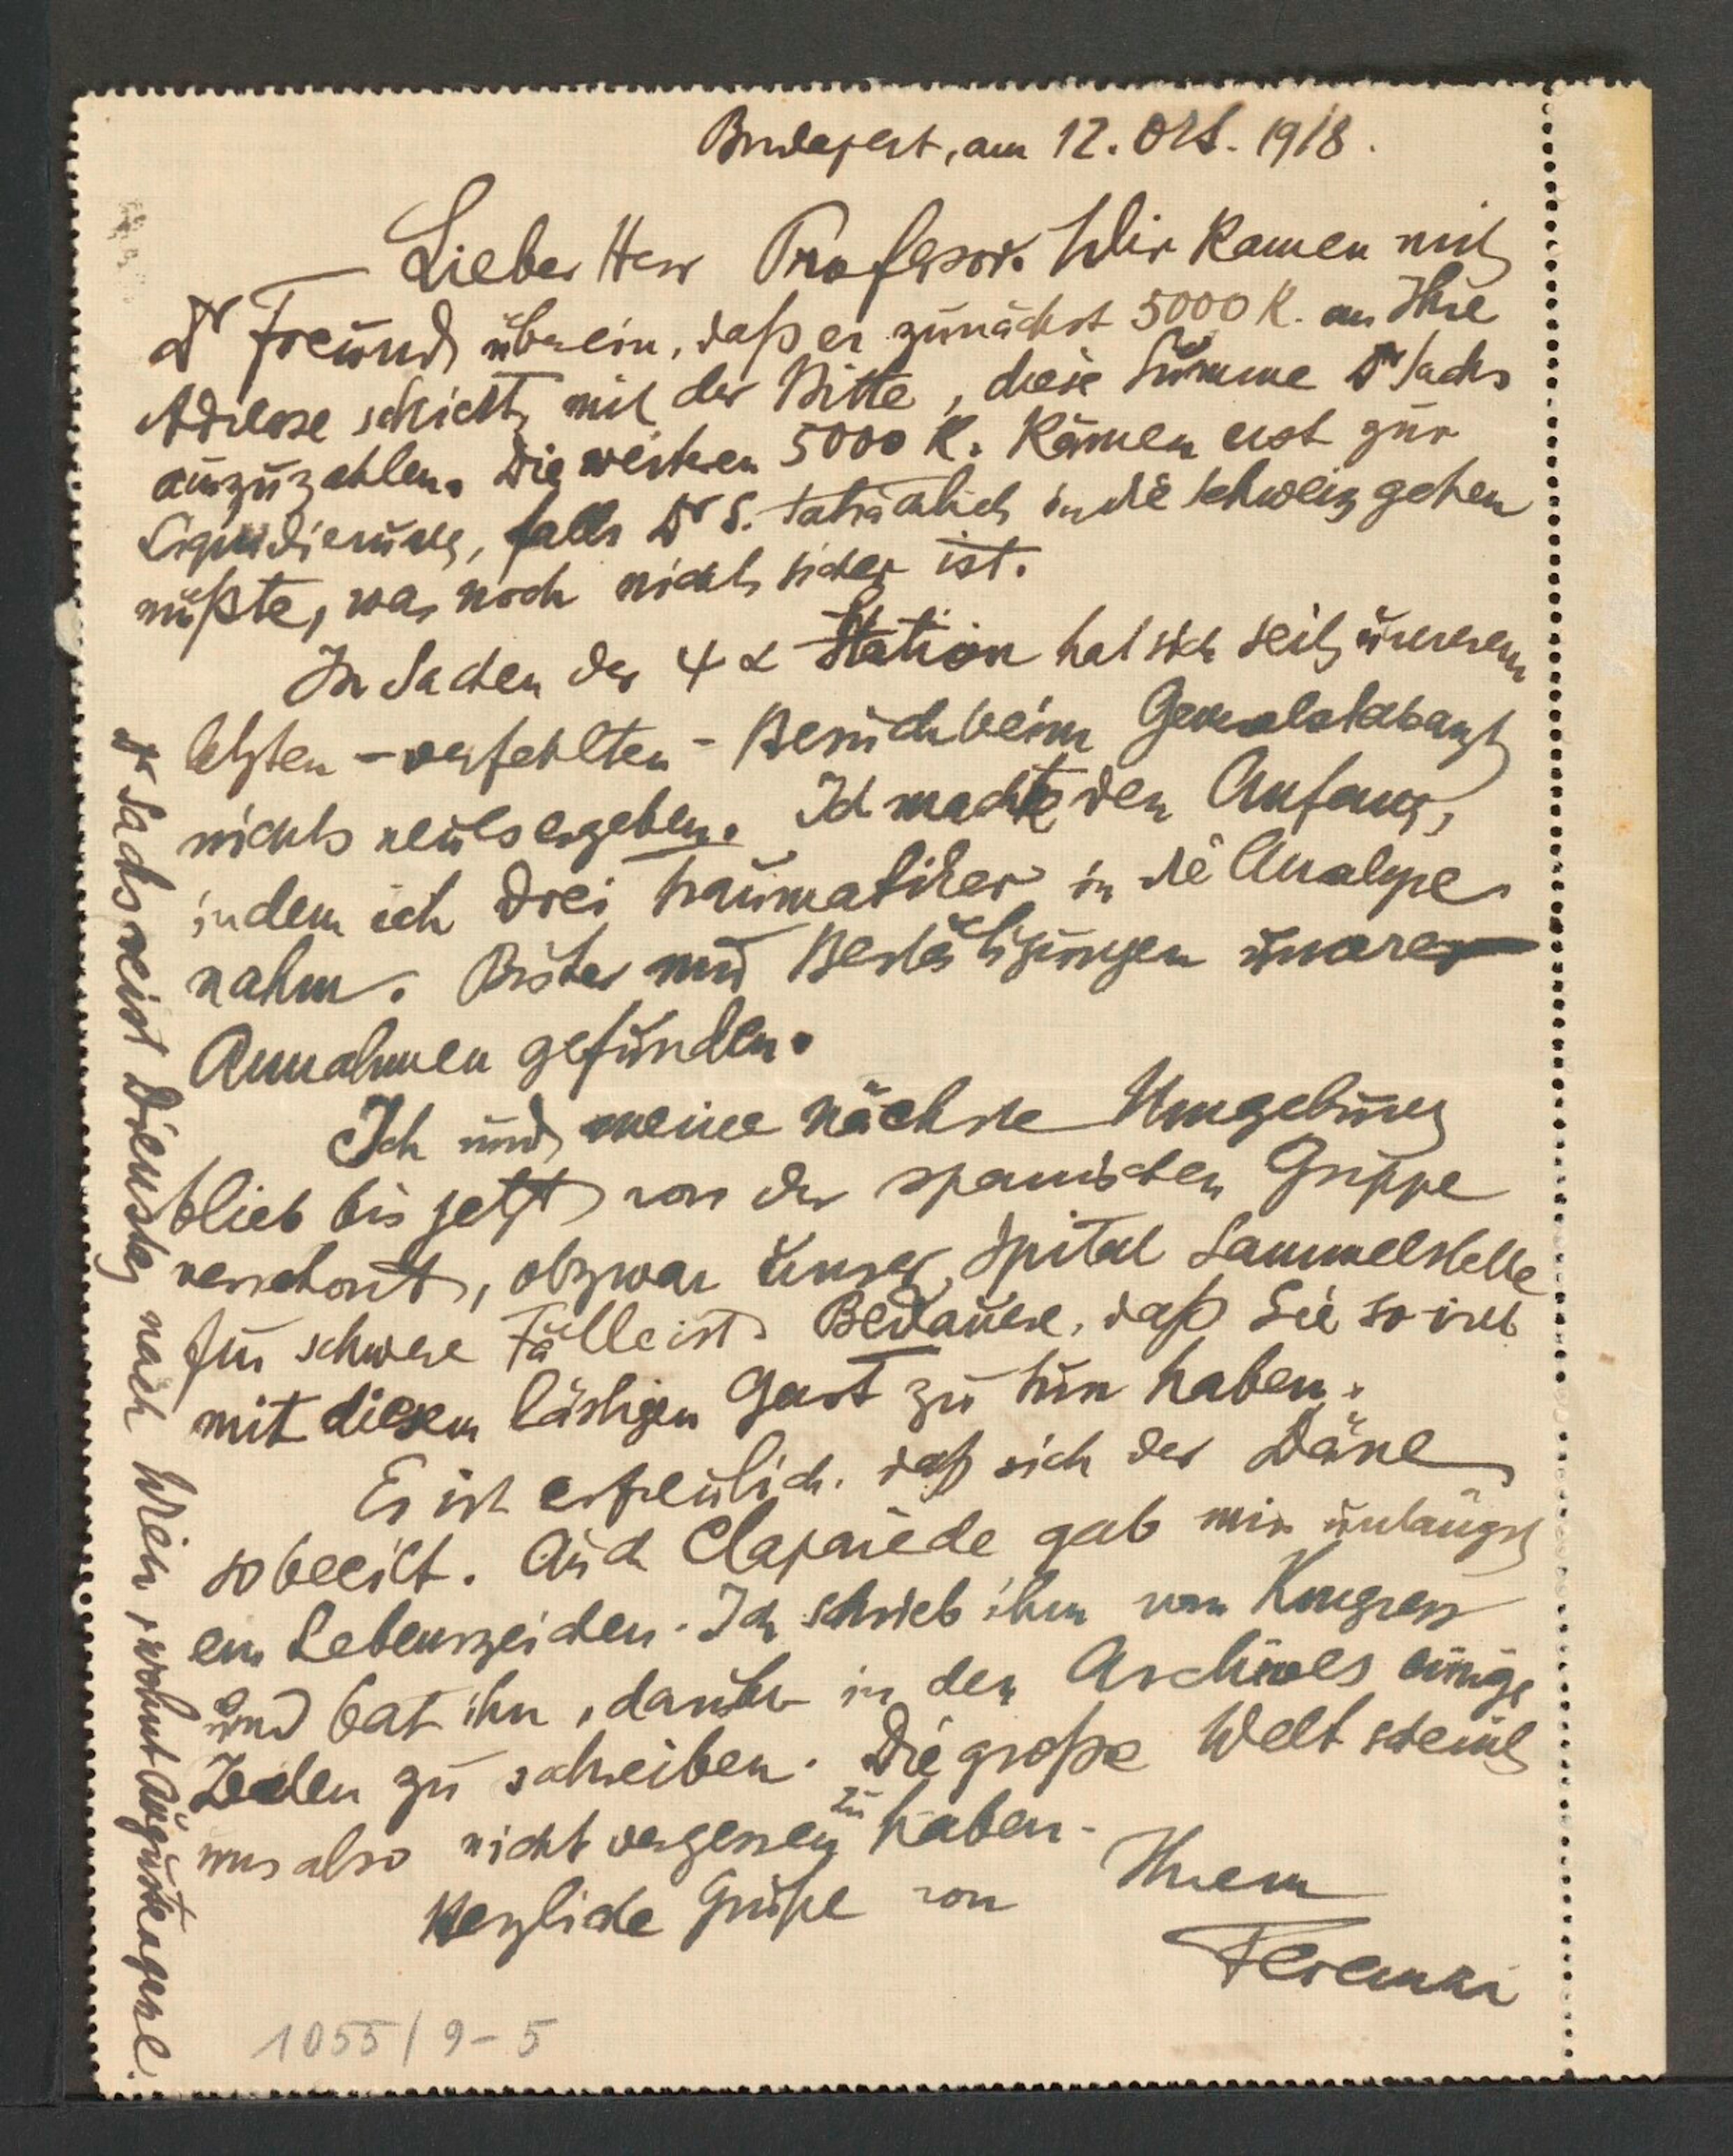 Budapest, am 12. Okt. 1918.
Lieber Herr Professor. Wir kamen mit
Dr Freund überein, daß er zunächst 5000 K. an Ihre
Adresse schickt, mit der Bitte, diese Summe Dr Sachs
auszuzahlen. Die weiteren 5000 K. kämen erst zur
Liquidierung, falls Dr S. tatsächlich in die Schweiz gehen
müßte, was noch nicht sicher ist.
In Sachen der Station hat sich seit unserem
letzten – verfehlten – Besuch beim Generalstabsarzt
nichts neues ergeben. Ich machte den Anfang,
indem ich drei Traumatiker in die Analyse
nahm. Bisher nur Bestätigungen unserer
Annahmen gefunden.
Ich und meine nächste Umgebung
blieb bis jetzt von der spanischen Grippe
verschont, obzwar unser Spital Sammelstelle
für schwere Fälle ist. Bedauere, daß Sie so viel
mit diesem lästigen Gast zu tun haben.
Es ist erfreulich, daß sich der Däne
so beeilt. Auch Claparède gab mir unlängst
ein Lebenszeichen. Ich schrieb ihm vom Kongress
und bat ihn, darüber in den Archives einige
Zeilen zu schreiben. Die große Welt scheint
uns also nicht vergessen zu haben.
Herzliche Grüße von Ihrem
Ferenczi
Dr Sachs reist Dienstag nach Wien, wohnt Augustengasse.
1055/9-5